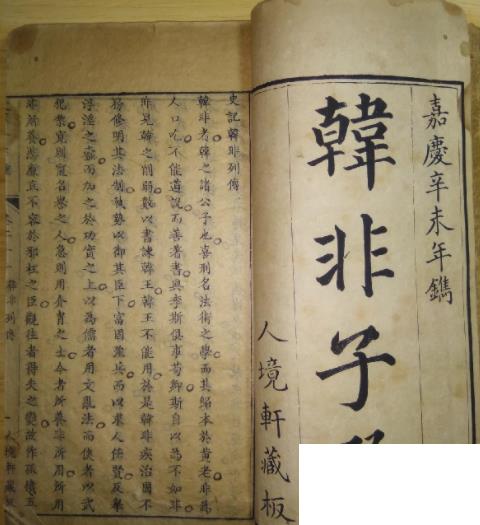 嘉慶辛未年鐫
韓非子
人境軒藏板
史記韓非列傳
韓非者韓之諸公子也喜刑名法術之學而其歸本於黃老非爲
人口吃不能道說而善著書與李斯俱事荀卿斯自以爲不如非
非見韓之削弱數以書諫韓王韓王不能用於是韓非疾治國不
務修明其法制執勢以御其臣下富國彊兵而以求人任賢反舉
浮淫之蠹而加之於功實之上以爲儒者用文亂法而俠者以武
犯禁寬則寵名譽之人急則用介冑之士今者所養非所用所用
非所養悲廉直不容於邪枉之臣觀往者得失之變故作孤憤五
韓非列傳
人境軒藏板